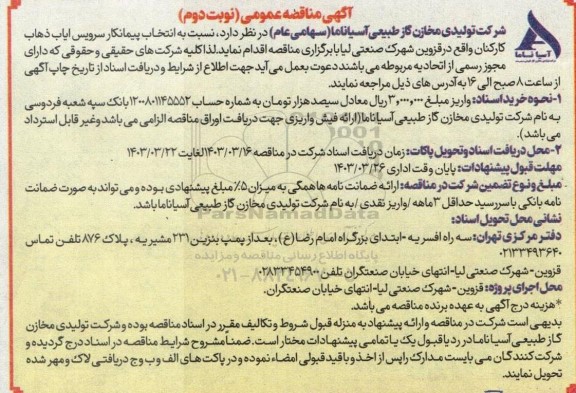 آگهی مناقصه عمومی (نوبت دوم)
آسیا ناما
شرکت تولیدی مخازن گاز طبیعی آسیاناما(سهامی عام) در نظر دارد، نسبت به انتخاب پیمانکار سرویس ایاب ذهاب
کارکنان واقع در قزوین شهرک صنعتی لیا با برگزاری مناقصه اقدام نماید.لذا کلیه شرکت های حقیقی و حقوقی که دارای
مجوز رسمی از اتحادیه مربوطه می باشند دعوت بعمل می آید جهت اطلاع از شرایط و دریافت اسناد از تاریخ چاپ آگهی
از ساعت ۸ صبح الی ۱۶ به آدرس های ذیل مراجعه نمایند.
۱-نحوه خرید اسناد: واریز مبلغ ۳،۰۰۰،۰۰۰ ریال معادل سیصد هزار تومان به شماره حساب ۱۲۰۰۸۰۱۱۴۵۵۵۲ بانک سپه شعبه فردوسی
به نام شرکت تولیدی مخازن گاز طبیعی آسیاناما(ارائه فیش واریزی جهت دریافت اوراق مناقصه الزامی می باشد وغیر قابل استرداد
می باشد).
۲-محل دریافت اسناد و تحویل پاکات: زمان دریافت اسناد شرکت در مناقصه ۱۴۰۳/۰۳/۱۶ لغایت ۱۴۰۳/۰۳/۲۲
مهلت قبول پیشنهادات: پایان وقت اداری ۱۴۰۳/۰۳/۲۶
مبلغ و نوع تضمین شرکت در مناقصه: ارائه ضمانت نامه ها همگی به میزان ۵٪ مبلغ پیشنهادی بوده و می تواند به صورت ضمانت
نامه بانکی با سررسید حداقل ۳ ماهه /واریز نقدی /به نام شرکت تولیدی مخازن گاز طبیعی آسیاناما باشد.
نشانی محل تحویل اسناد:
دفتر مرکزی تهران: سه راه افسریه -ابتدای بزرگراه امام رضا (ع)، بعد از پمپ بنزین ۲۳۱ مشیریه، پلاک ۸۷۶ تلفن تماس
۰۲۱۳۳۴۹۳۶۴۰
قزوین-شهرک صنعتی لیا-انتهای خیابان صنعتگران تلفن ۰۲۸۳۳۴۵۴۹۰۰
محل اجرای پروژه: قزوین-شهرک صنعتی لیا-انتهای خیابان صنعتگران.
*هزینه درج آگهی به عهده برنده مناقصه می باشد.
بدیهی است شرکت در مناقصه و ارائه پیشنهاد به منزله قبول شروط و تکالیف مقرر در اسناد مناقصه بوده و شرکت تولیدی مخازن
گاز طبیعی آسیاناما در رد یا قبول یک یا تمامی پیشنهادات مختار است. ضمنا مشروح شرایط مناقصه در اسناد درج گردیده و
شرکت کنندگان می بایست مدارک را پس از اخذ و با قید قبولی امضاء نموده و در پاکت های الف و ب و ج دریافتی لاک و مهر شده
تحویل نمایند.
ParsNamadData
پایگاه اطلاع رسانی مناقصه و مزایده